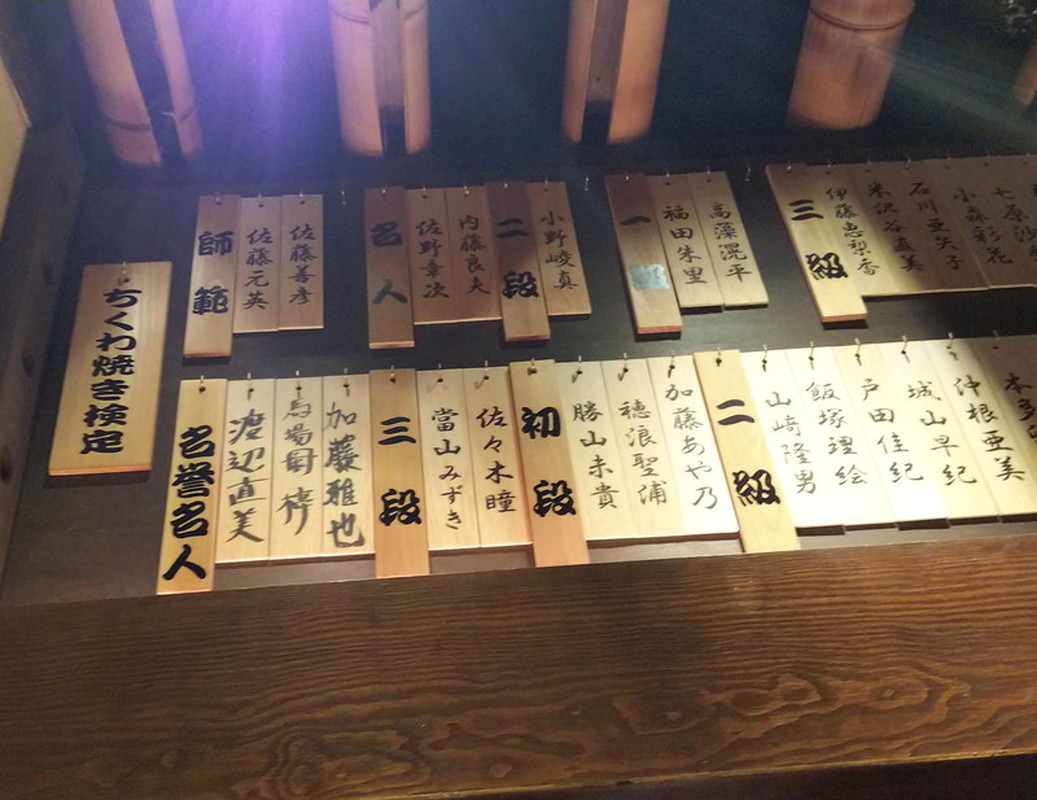 ちくわ焼き検定
師範
佐藤元英
佐藤善彦
名人
佐野幸次
内藤良夫
二段
小野崚真
一級
福田朱里
高藻滉平
三級
伊藤恵梨香
米沢谷直美
石川亜矢子
小森彩花
七原沙
名誉名人
渡辺直美
馬場
加藤雅也
三段
當山みずき
佐々木瞳
初段
勝山未貴
穂浪聖浦
加藤あや乃
二級
山崎隆男
飯塚理絵
戸田佳紀
城山早紀
仲根亜美
本多